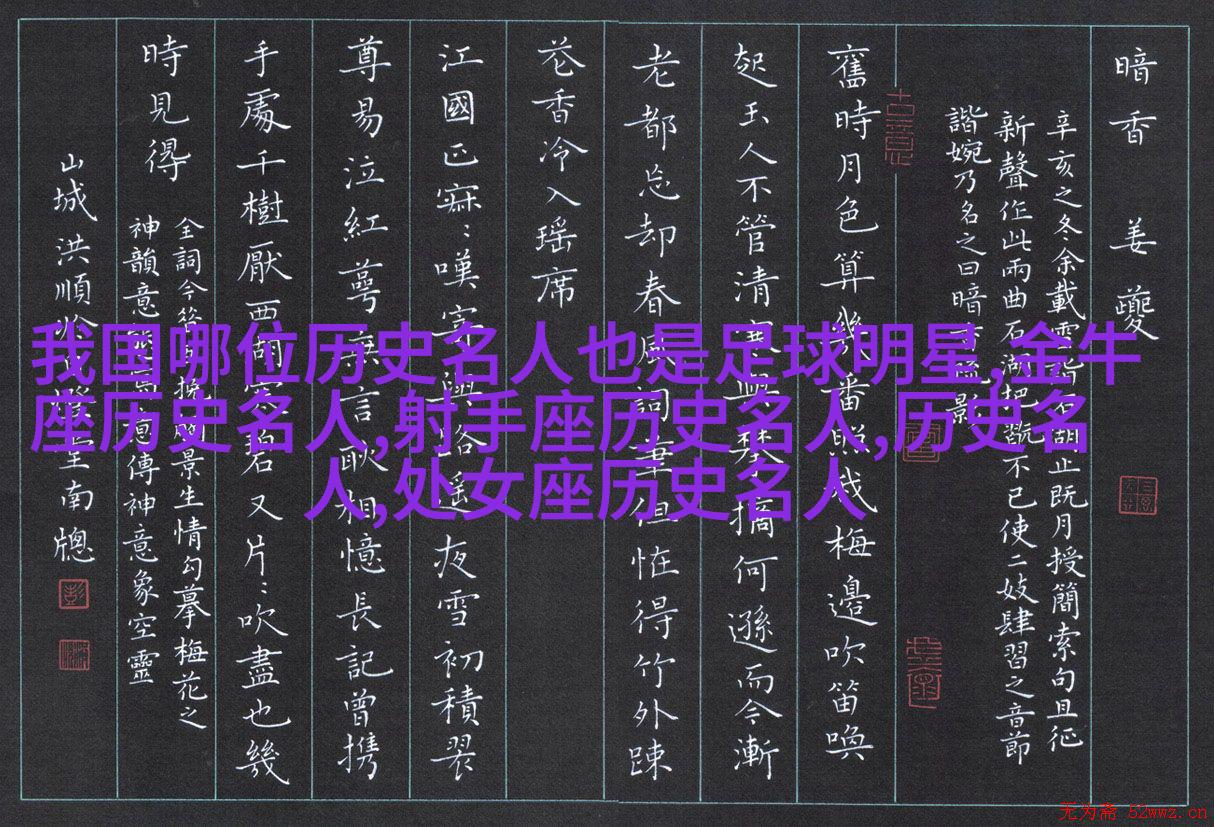 暗香 姜夔
辛亥之冬余載雪詣石湖止既月授簡索句且征
新聲作此兩曲石湖把翫不已使二妓肆習之音節
諧婉乃名之曰暗香疏影
古意
舊時月色算幾番照我梅邊吹笛喚
起玉人不管清寒與攀摘何遜而今漸
老都忘却春風詞筆但怪得竹外踈
花香冷入瑶席
江國正寂〻嘆寄與路遥夜雪初積翠
尊易泣紅萼無言耿相憶長記曾携
手處千樹厭西湖寒碧又片〻吹盡也幾
時見得
全詞今昔景生情勾摹梅花之
神韻意傳神意象空靈
山城洪順南牕
我国哪位历史名人也是足球明星,金牛
座历史名人,射手座历史名人,历史名
人,处女座历史名人
无为斋 52wwz.cn